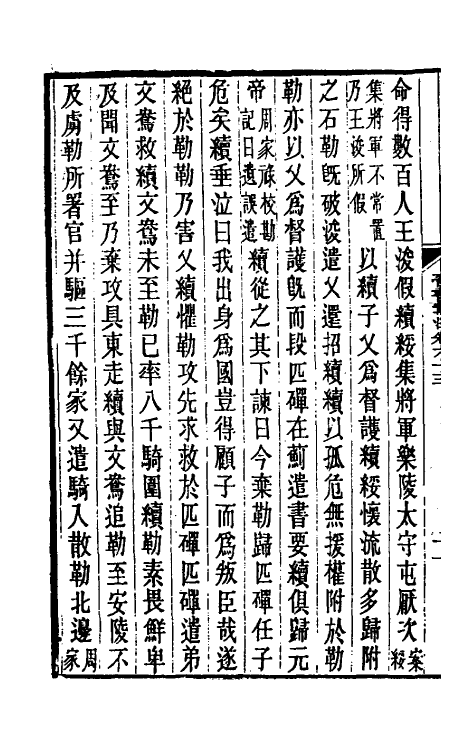 命得數百人王浚假續綏集將軍樂陵太守屯厭次案綏
集將軍不常置乃王浚所假以續子乂爲督護續綏懷流散多歸附
之石勒旣破浚遣乂還招續續以孤危無援權附於勒
勒亦以乂爲督護旣而段匹磾在薊遣書要續俱歸元
帝周家祿校勘記曰遺誤遣續從之其下諫曰今棄勒歸匹磾任子
危矣續垂泣曰我出身爲國豈得顧子而爲叛臣哉遂
絕於勒勒乃害乂續懼勒攻先求救於匹磾匹磾遣弟
文鴦救續文鴦未至勒已率八千騎圍續勒素畏鮮卑
及聞文鴦至乃棄攻具東走續與文鴦追勒至安陵不
及虜勒所署官并驅三千餘家又遣騎入散勒北邊周家